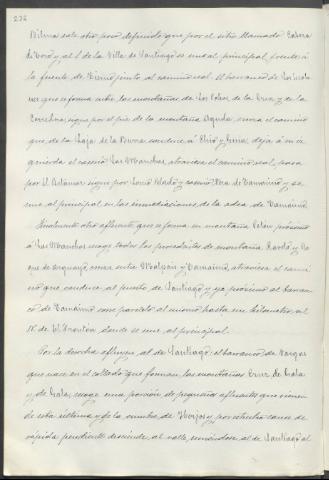 236
Bilma sale otro poco definido que por el sitio llamado Cabeza
de Toro y al S de la Villa de Santiago se une al principal, frente á
la fuente de junto al camino real. El barranco de
que se forma entre las montañas de los Topos de la Cruz y de la
Corredera, sigue por el pie de la montaña Aguda, cruza el camino
que de la Caja de la Burra conduce á Chío y Guía; deja á su iz-
quierda el caserío Las Manchas, atraviesa el camino real, pasa
por El Retamar sigue por Lomo Pelado y caserío Era de Tamaimo y se
une al principal en las inmediaciones de la aldea de Tamaimo.
Finalmente otro afluente que se forma en montaña Pelón próximo
á Las Manchas recoge todos los procedentes de montaña Samara y Ro-
que de Arguayo, corre entre Malpaís y Tamaimo, atraviesa el cami-
no que conduce al puerto de Santiago y ya próximo al barran-
co de Tamaimo corre paralelo al mismo hasta un kilómetro al
N. de El Frontón donde se une al principal.
Por la derecha afluye, al de Santiago, el barranco de Vargas
que nace en el collado que forman las montañas Cruz de Gala
y de Gala; recoge una porción de pequeños afluentes que vienen
de esta última y de la cumbre de Herjos y por estrecho cauce de
rápida pendiente desciende al valle, uniéndose al de Santiago al